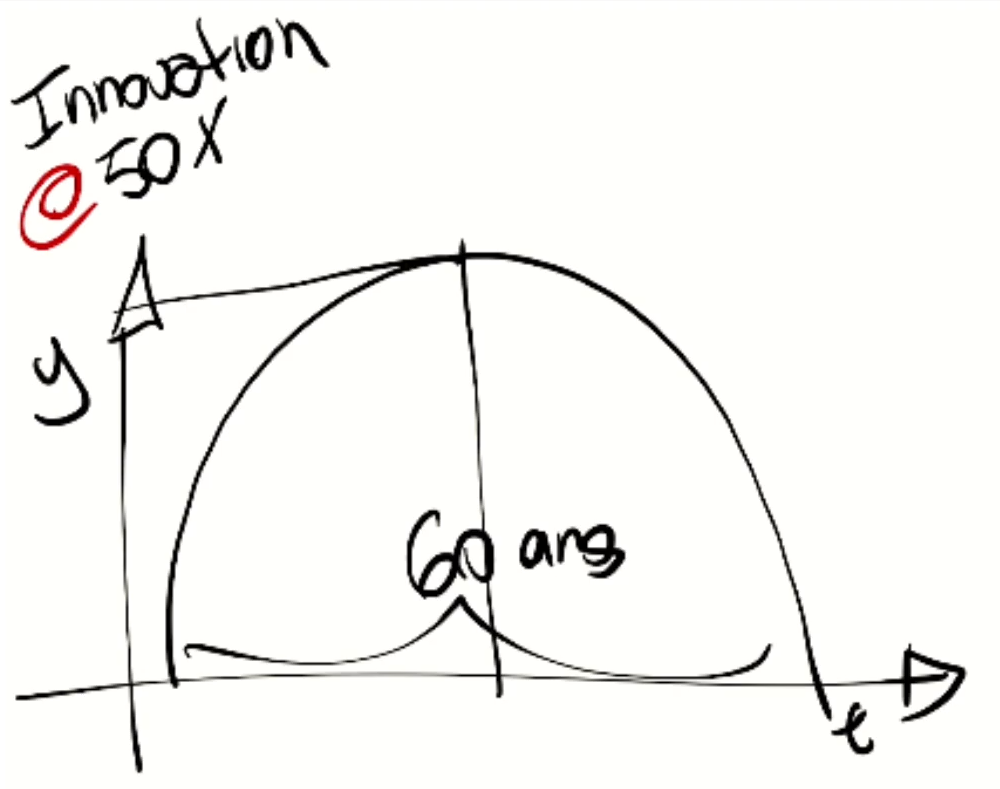 Innovation
@ 50X
y
60 ans
t